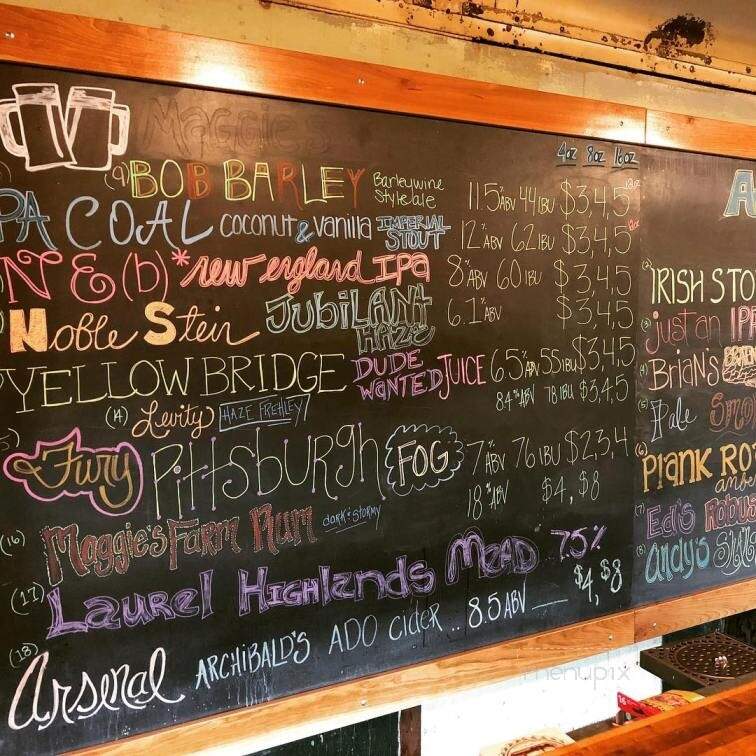 Maggie's
4oz 8oz 16oz
(9) BOB BARLEY Barleywine Style ale 11.5% ABV 44 IBU $3,4,5
PA COAL coconut & vanilla IMPERIAL STOUT 12% ABV 62 IBU $3,4,5
NE(b) *new england IPA 8% ABV 60 IBU $3,4,5
Noble Stein JubiLANT HAZE 6.1% ABV $3,4,5
YELLOW BRIDGE DUDE WANTED JUICE 6.5% ABV 55 IBU $3,4,5
(14) Levity HAZE FREHLEY 8.4% ABV 78 IBU $3,4,5
Fury Pittsburgh FOG 7% ABV 76 IBU $2,3,4
(16) Maggie's Farm Rum dark & stormy 18% ABV $4, $8
(17) Laurel Highlands Mead 7.5% $4, $8
(18) Arsenal ARCHIBALD'S ADO cider .. 8.5 ABV
A
IRISH STO
Justan IPA
Brians
Pale Smo
Plank Ro
amber
Ed's Robus
Andy's
menupix